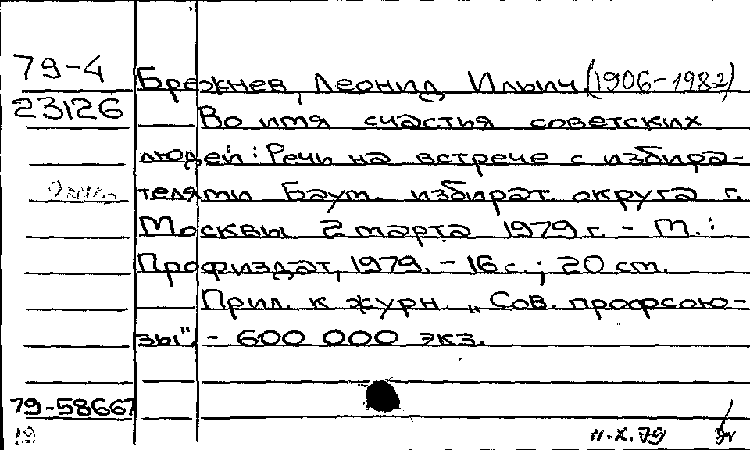 79-4
Брежнев, Леонид Ильич (1906-1982)
23126
Во имя счастья советских
людей: Речь на встрече с избира-
телями Баум. избират. округа г.
Москвы 2 марта 1979 г. - М.:
Профиздат, 1979. - 16 с.; 20 см.
Прил. к журн „Сов. профсою-
зы". - 600 000 экз.
79-58667
19
11.X.79